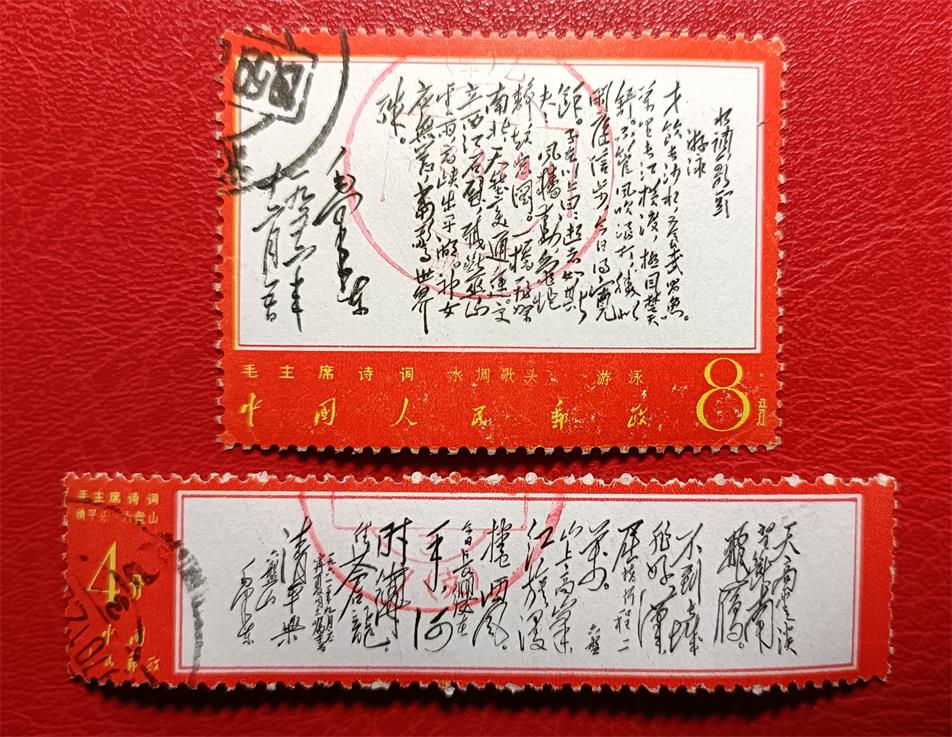 水調歌頭
游泳
才饮长沙水，又食武昌魚。
萬里长江横渡，极目楚天
舒。不管风吹浪打，勝似
闲庭信步，今日得宽
馀。子在川上曰：逝者如斯
夫！风樯动，龟蛇
静，起宏图。一桥飞架
南北，天堑变通途。更
立西江石壁，截断巫山
云雨，高峡出平湖。神女
应無恙，当惊世界
殊。
毛泽东
一九五六年
十二月五日
毛主席诗词 水调歌头 游泳
中国人民邮政 8分
毛主席诗词
清平乐·六盘山
4分
中国
人民邮政
天高雲淡
望断南
飛雁。
不到长城
非好漢
屈指行程二
萬。六盤
山上高峯
红旗漫
捲西風。
今日长缨在
手，何
时縛
住蒼龍
清平樂
六盤山
毛泽东